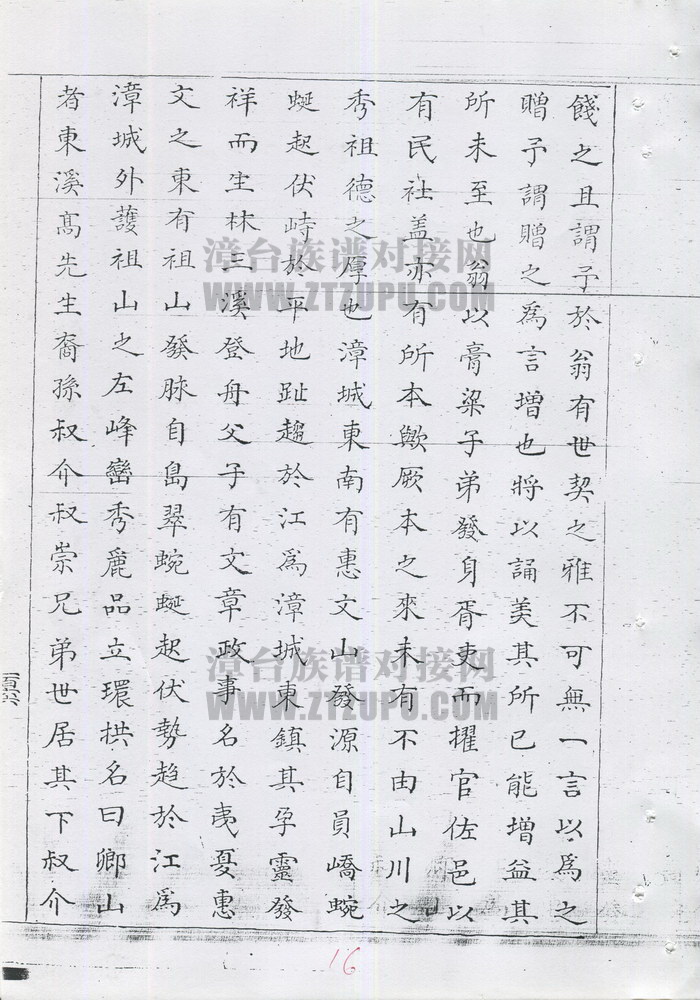 餞之且謂予於翁有世契之雅不可無一言以為之
贈予謂贈之為言增也將以誦美其所已能增益其
所未至也翁以膏粱子弟發身胥吏而擢官佐邑以
有民社盖亦有所本歟厥本之來未有不由山川之
秀祖德之厚也漳城東南有惠文山發源自員嶠蜿
蜒起伏峙於平地趾趨於江為漳城東鎮其孕靈發
祥而生林三溪登舟父子有文章政事名於夷戛惠
文之東有祖山發脉自島翠蜿蜒起伏勢趋於江為
漳城外護祖山之左峰巒秀麗品立環拱名曰卿山
者東溪高先生裔孫叔介叔崇兄弟世居其下叔介
漳台族谱对接网
WWW.ZTZUPU.COM
漳台族谱对接网
WWW.ZTZUPU.COM
16